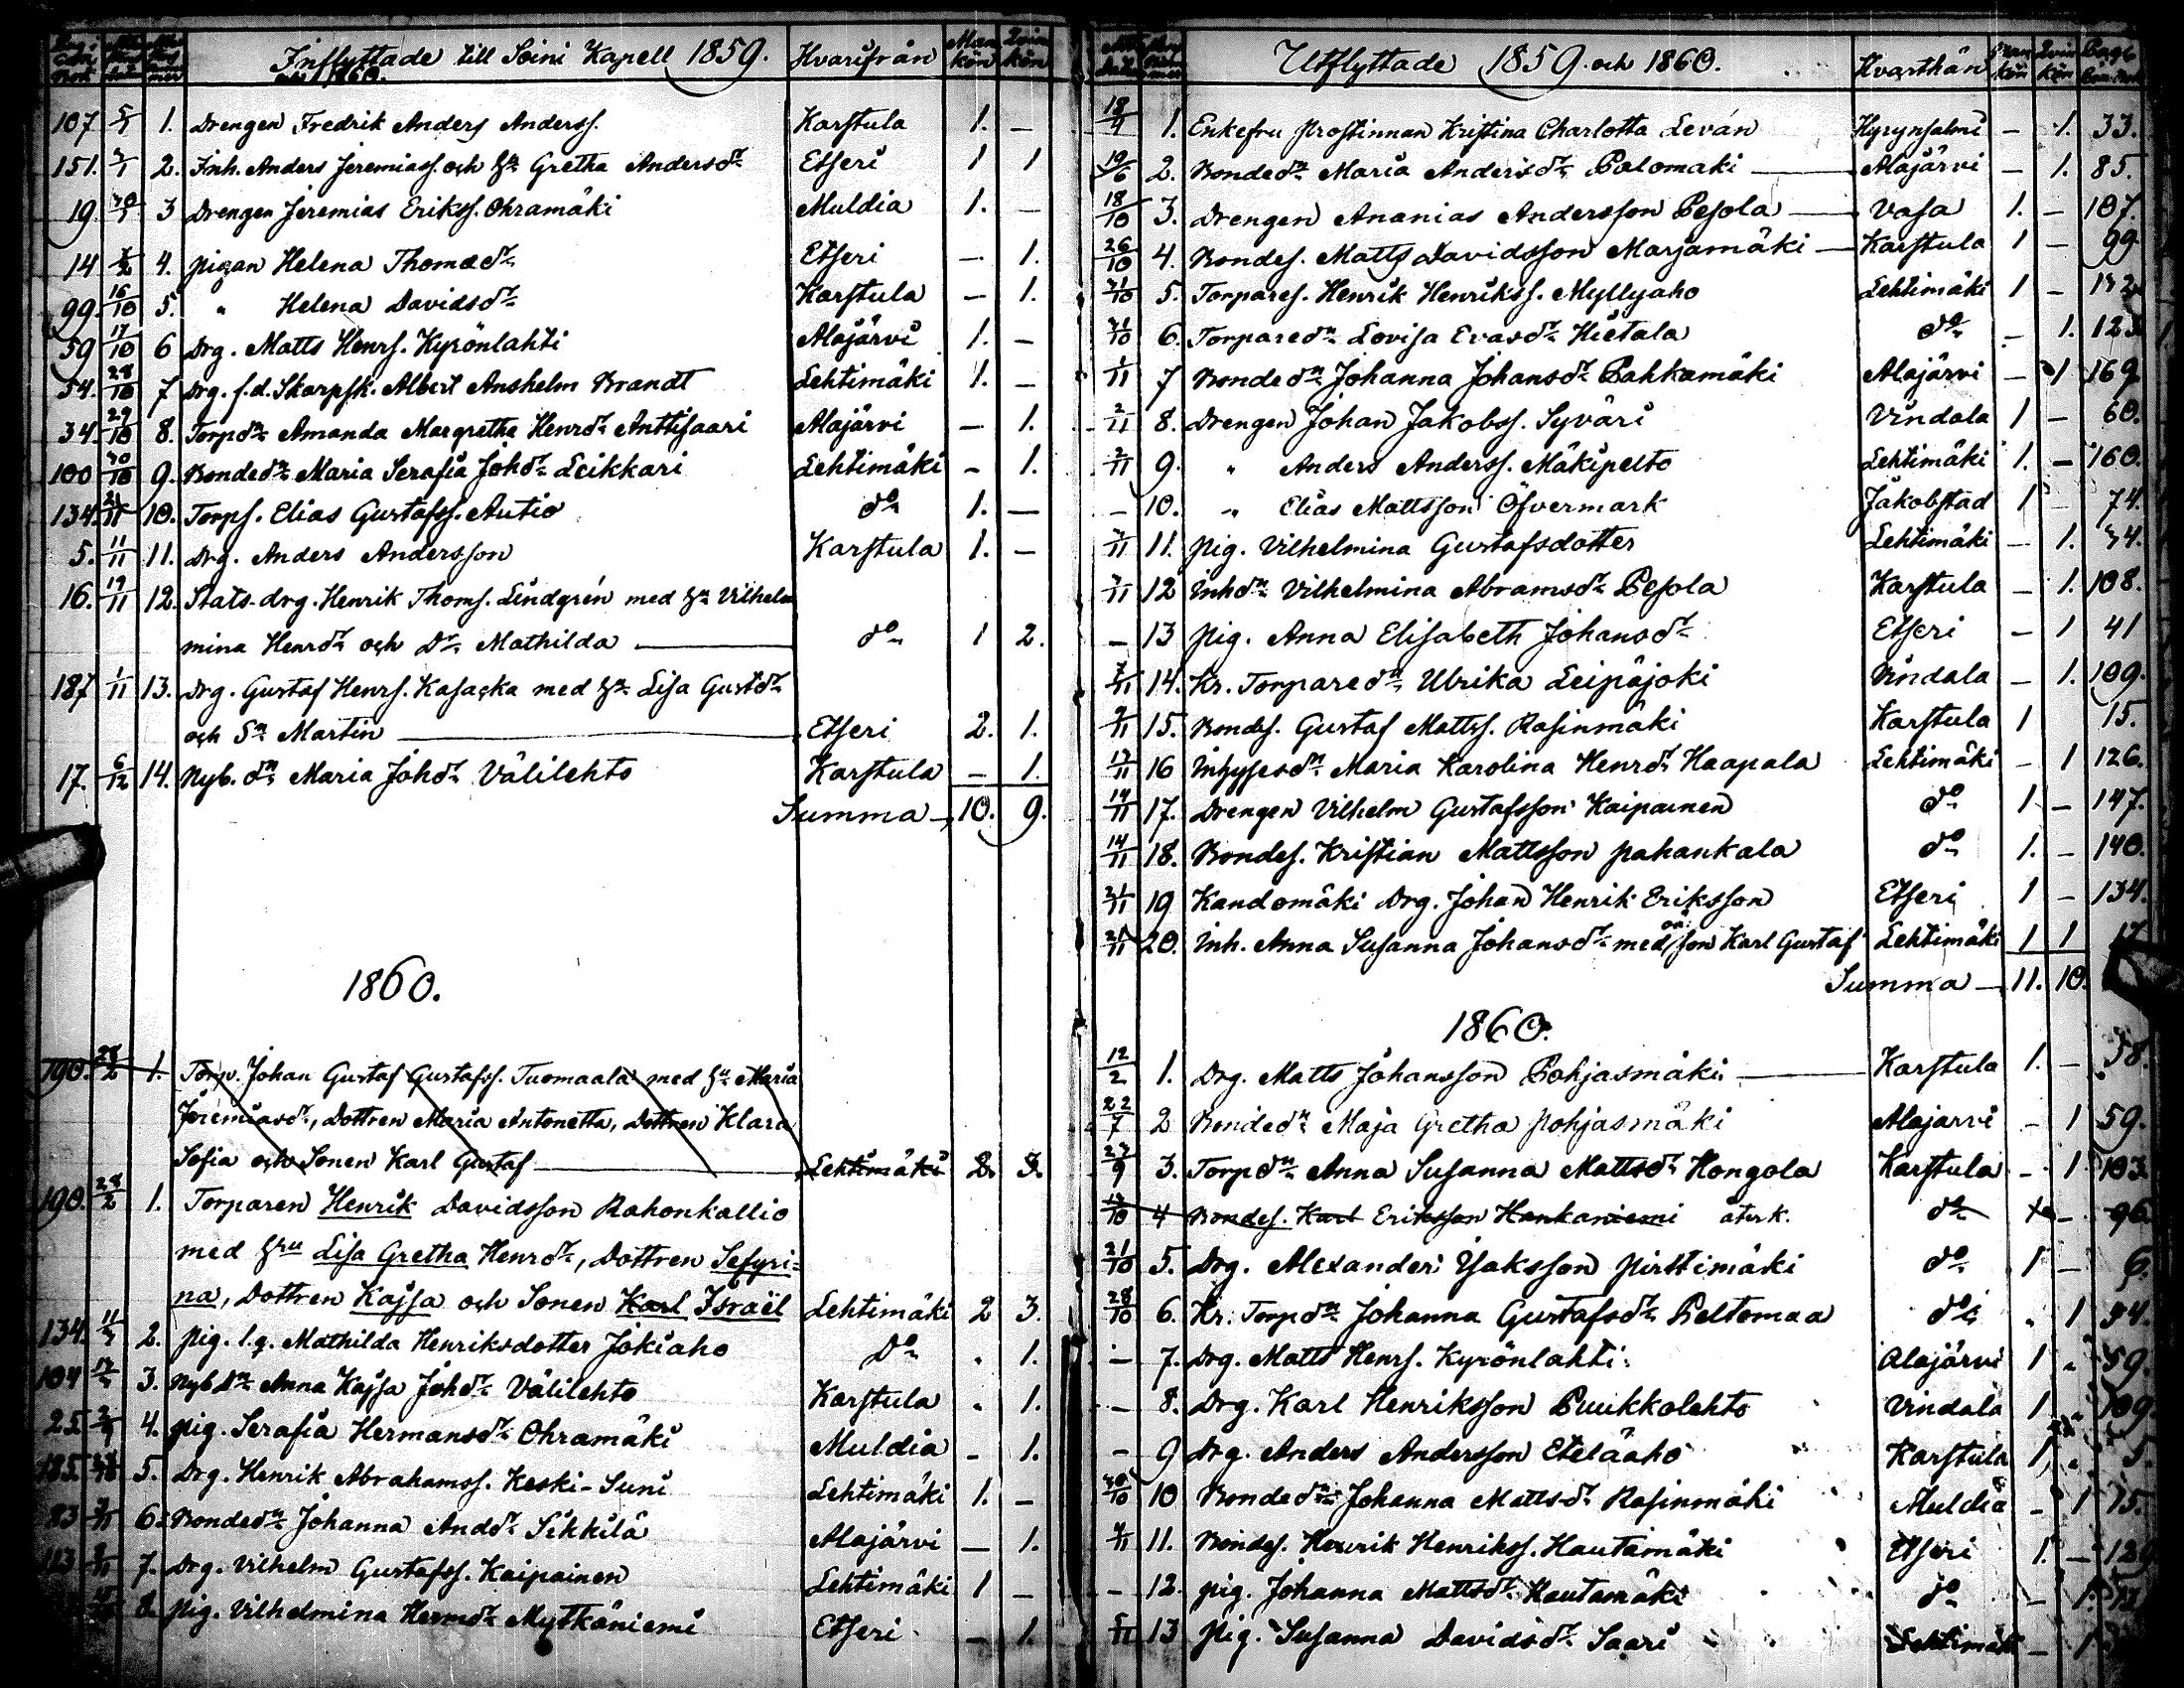 Inflyttade till Soini Kapell 1859. Hvarifrån Man kön Qvin kön
och 1860.
107. 1. Drengen Fredrik Anders Anderss. Karstula 1. —
151. 2. Inh. Anders Jeremiass. och hu Gretha Andersdr Etseri 1 1
19. 3 Drengen Jeremias Erikss. Ohramäki Muldia 1. —
14 4. pigan Helena Thomædr Etseri — 1.
99. 16/10 5. " Helena Davidsdr Karstula — 1.
59 17/10 6 Drg. Matts Henrs. Kyrönlahti Alajärvi 1. —
54. 28/10 7 Drg. f.d. Skarpsk. Albert Anshelm Brandt Lehtimäki 1. —
34. 29/10 8. Torpdn Amanda Margretha Henrdr Anttisaari Alajärvi — 1.
100 30/10 9. Bondedn Maria Serafia Johdr Leikkari Lehtimäki — 1.
134. 10. Torps. Elias Gustafss. Autio do 1. —
5. 11/11 11. Drg. Anders Andersson Karstula 1. —
16. 19/11 12. Stats-drg. Henrik Thoms. Lindgrén med hu Vilhel
mina Henrdr och Dr Mathilda — do 1 2.
187 1/11 13. Drg. Gustaf Henrs. Kasacka med hu Lisa Gustdr
och Sn Martin — Etseri 2. 1.
17. 6/12 14. Nyb. dn Maria Johdr Välilehto Karstula — 1.
Summa — 10. 9.
1860.
190. 28/2 1. Torp. Johan Gustaf Gustafss. Tuomaala med hu Maria
Jeremiasdr, Dottren Maria Antonetta, Dottren Klara
Sofia och Sonen Karl Gustaf — Lehtimäki 2. 3.
190. 28/2 1. Torparen Henrik Davidsson Rahonkallio
med hru Lisa Gretha Henrdr, Dottren Sefyri=
na, Dottren Kajsa och Sonen Karl Israël Lehtimäki 2 3.
134. 2. pig. l.q. Mathilda Henriksdotter Jokiaho Do . 1.
104 3. Nyb Dn Anna Kajsa Johdr Välilehto Karstula . 1.
25. 4. pig. Serafia Hermansdr Ohramäki Muldia — 1.
185. 5. Drg. Henrik Abrahamss. Keski-Suni Lehtimäki 1. —
83 6. Bondedn Johanna Anddr Sikkilä Alajärvi — 1.
113 7. Drg. Vilhelm Gustafss. Kaipainen Lehtimäki 1 —
8. pig. Vilhelmina Hermdr Mytkäniemi Etseri — 1.
Utflyttade 1859. och 1860. Hvarthän Man kön Qvin kön
18/4 1. Enkefru prostinnan Kristina Charlotta Leván Hyrynsalmi — 1. 33.
19/6 2. Bondedn Maria Andersdr Palomaki — Alajärvi — 1. 85.
18/10 3. Drengen Ananias Andersson Pesola — Vasa 1. — 107.
26/10 4. Bondes. Matts Davidsson Marjamäki — Karstula 1 — 99
31/10 5. Torpares. Henrik Henrikss. Myllyaho Lehtimäki 1 — 132
31/10 6. Torparedn Lovisa Evasdr Hietala do — 1. 123
1/11 7 Bondedn Johanna Johansdr Pahkamäki Alajärvi — 1 169.
2/11 8. Drengen Johan Jakobss. Syväri Vindala 1 — 60.
2/11 9. " Anders Anderss. Mäkipelto Lehtimäki 1. — 160.
— 10. " Elias Mattsson Öfvermark Jakobstad 1 74.
11. pig. Vilhelmina Gustafsdotter Lehtimäki — 1. 34.
12 Inhdn Vilhelmina Abramsdr Pesola Karstula — 1. 108.
— 13 pig. Anna Elisabeth Johansdr Etseri — 1 41
14. Kr. Torparedn Ulrika Leipäjoki Vindala — 1. 109.
15. Bondes. Gustaf Mattss. Rasinmäki Karstula 1 15.
16 Inhysesdn Maria Karolina Henrdr Haapala Lehtimäki — 1 126.
14/11 17. Drengen Vilhelm Gustafsson Kaipainen do 1 — 147.
14/11 18. Bondes. Kristian Mattsson pahankala do 1. — 140.
21/11 19 Kandomäki Drg. Johan Henrik Eriksson Etseri 1 — 134.
21/11 20. Inh. Anna Susanna Johansdr med oä. son Karl Gustaf Lehtimäki 1 1 17
Summa — 11. 10.
1860.
12/2 1. Drg. Matts Johansson Pohjasmäki — Karstula 1. — 58.
22/7 2 Bondedn Maja Gretha pohjasmäki Alajarvi — 1 59.
27/9 3. Torpdn Anna Susanna Mattsdr Hongola Karstula — 1 103.
4 Bondes. Karl Eriksson Hankaniemi återk. do — 96.
21/10 5. Drg. Alexander Isaksson pirttimäki do 1 — 6.
28/10 6. Kr. Torpdn Johanna Gustafsdr Peltomaa do . 1 34.
— 7. Drg. Matts Henrs. Kyrönlahti Alajärvi 1 . 59.
— 8. Drg. Karl Henriksson Puukkolehto Vindala 1 109.
— 9 Drg. Anders Andersson Eteläaho Karstula 1 . 5.
30/10 10 Bondedn Johanna Mattsdr Rasinmäki Muldia — 1 15.
11. Bondes. Henrik Henrikss. Hautamäki Etseri 1. — 129
— 12. pig. Johanna Mattsdr Hautamäki do — 1.
13 pig. Susanna Davidsdr Saari Lehtimäki — 1